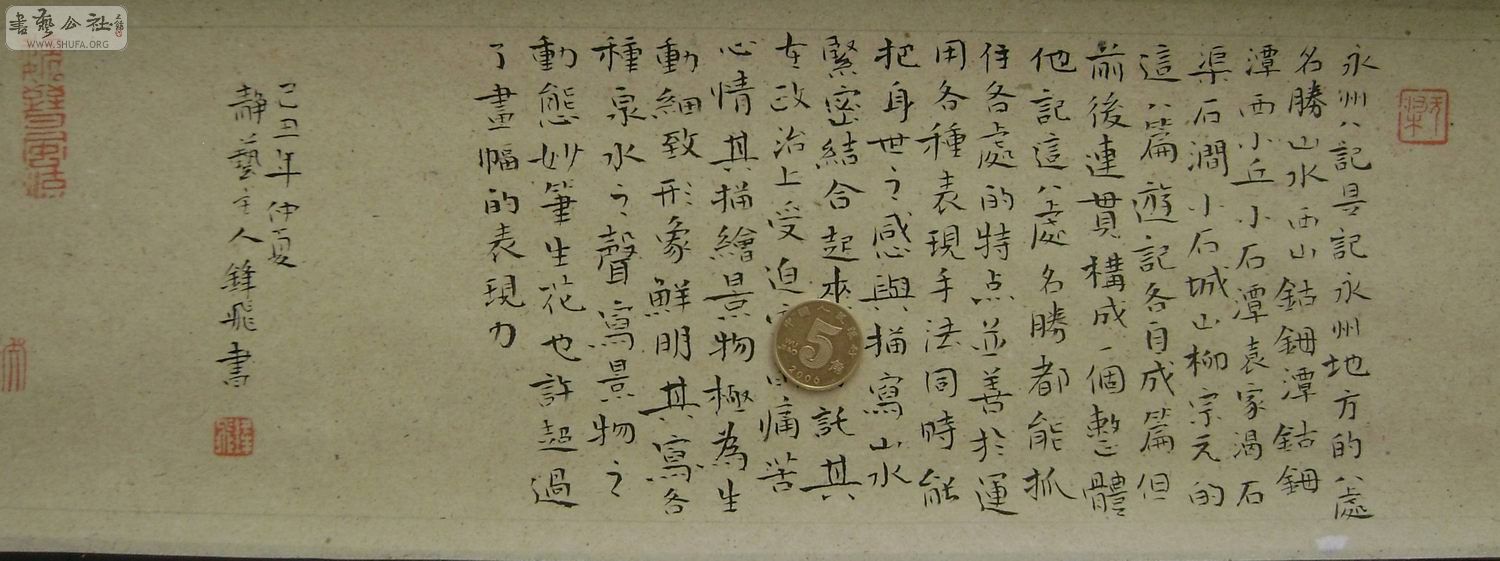 永州八記是記永州地方的八處
名勝山水西山鈷鉧潭鈷鉧
潭西小丘小石潭袁家渴石
渠石澗小石城山柳宗元的
這八篇遊記各自成篇但
前後連貫構成一個整體
他記這八處名勝都能抓
住各處的特点並善於運
用各種表現手法同時能
把身世之感與描寫山水
緊密結合起來託其
在政治上受迫痛苦
心情其描繪景物極為生
動細致形象鮮明其寫各
種泉水之聲寫景物之
動態妙筆生花也許超過
了畫幅的表現力
己丑年仲夏
靜藝主人鋒飛書
5角
2006
書藝公社
WWW.SHUFA.ORG